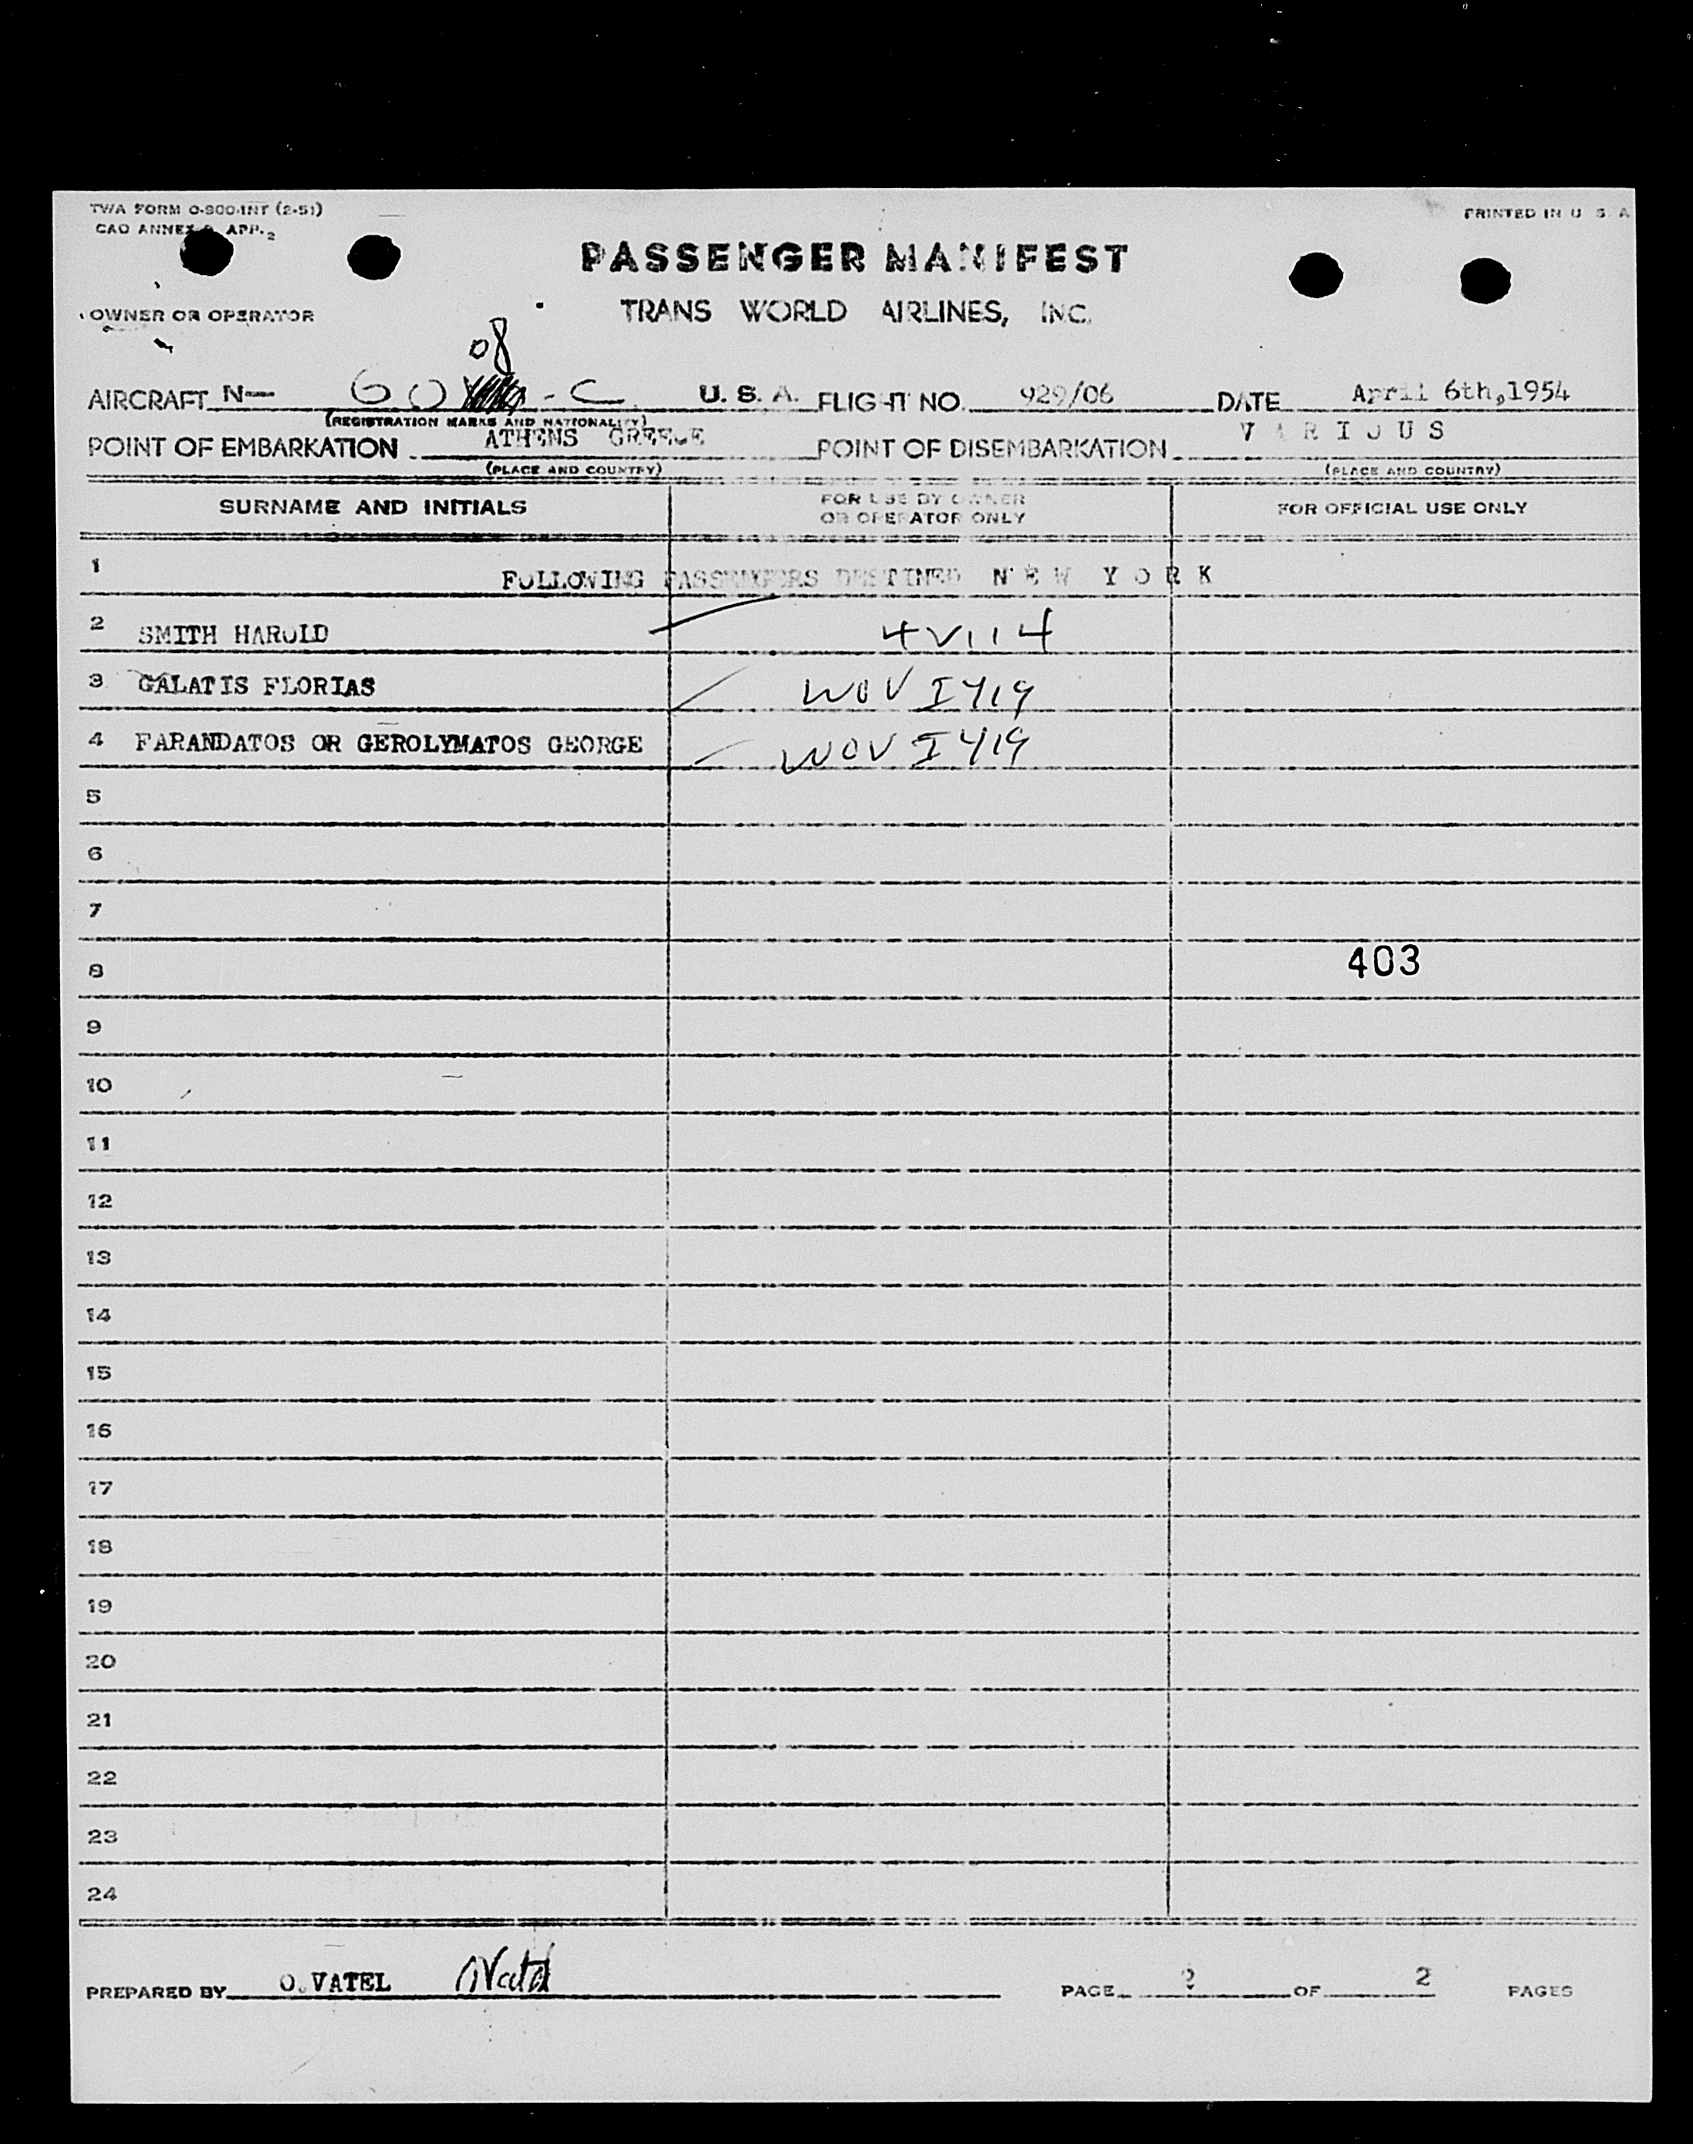 TWA FORM O-800-INT (2-51)
PRINTED IN U S A
CAO ANNEX APP. 2
PASSENGER MANIFEST
OWNER OR OPERATOR
TRANS WORLD AIRLINES, INC.
08
AIRCRAFT N— 60 -C U. S. A. FLIGHT NO. 929/06 DATE April 6th,1954
(REGISTRATION MARKS AND NATIONALITY)
POINT OF EMBARKATION ATHENS GREECE POINT OF DISEMBARKATION VARIOUS
(PLACE AND COUNTRY) (PLACE AND COUNTRY)
SURNAME AND INITIALS FOR USE BY OWNER OR OPERATOR ONLY FOR OFFICIAL USE ONLY
1 FOLLOWING PASSENGERS DESTINED N E W Y O R K
2 SMITH HAROLD 4V114
3 GALATIS FLORIAS WOV I419
4 FARANDATOS OR GEROLYMATOS GEORGE WOV I419
5
6
7
8 403
9
10
11
12
13
14
15
16
17
18
19
20
21
22
23
24
PREPARED BY O.VATEL OVatel PAGE 2 OF 2 PAGES